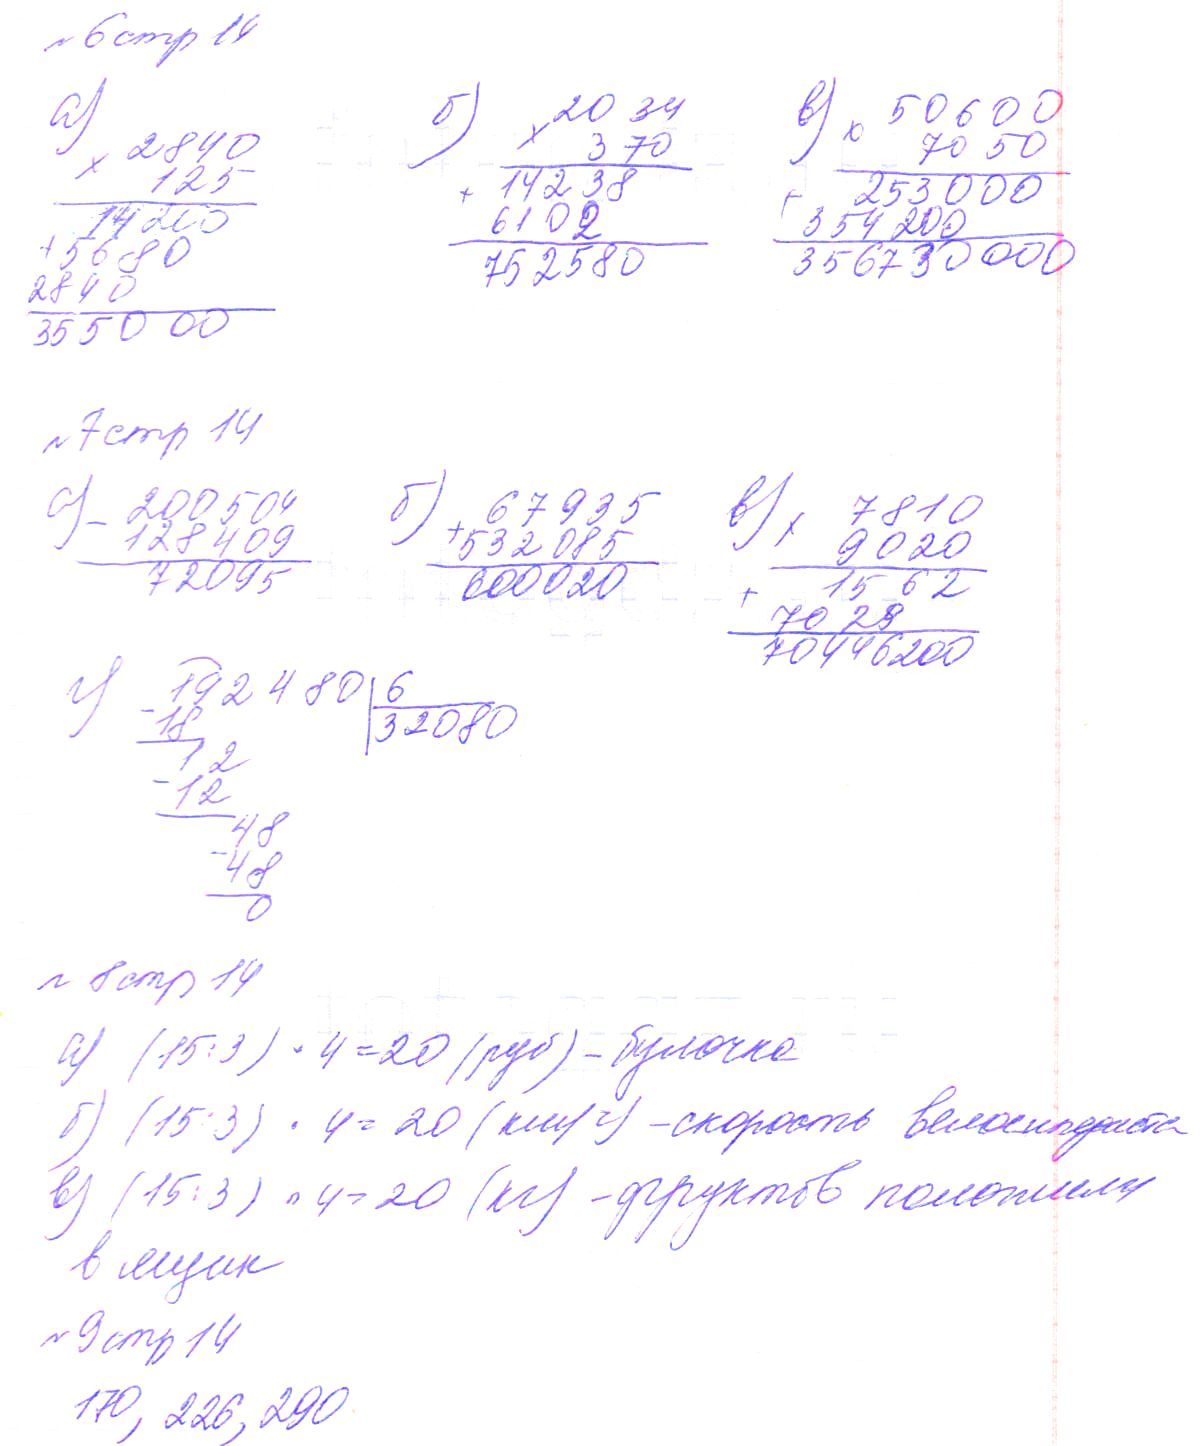 №6 стр 14
а) б) в)
× 2840
125
14200
+ 5680
2840
355000
× 2034
370
+ 14238
6102
752580
× 50600
7050
+ 253000
354200
356730000
№7 стр 14
а) - 200504
128409
72095
б) + 67935
532085
600020
в) × 7810
9020
+ 1562
7029
70446200
г) - 192480 | 6
18 32080
12
- 12
48
- 48
0
№8 стр 14
а) (15:3) · 4 = 20 (руб) – булочка
б) (15:3) · 4 = 20 (км/ч) – скорость велосипедиста
в) (15:3) · 4 = 20 (кг) – фруктов положили
в ящик
№9 стр 14
170, 226, 290